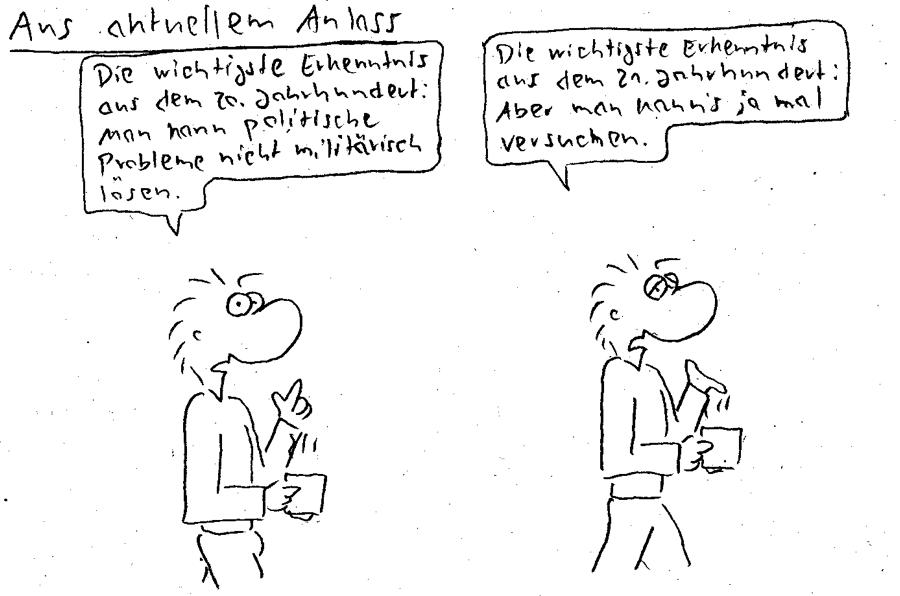 Aus aktuellem Anlass
Die wichtigste Erkenntnis
aus dem 20. Jahrhundert:
Man kann politische
Probleme nicht militärisch
lösen.
Die wichtigste Erkenntnis
aus dem 21. Jahrhundert:
Aber man kann's ja mal
versuchen.